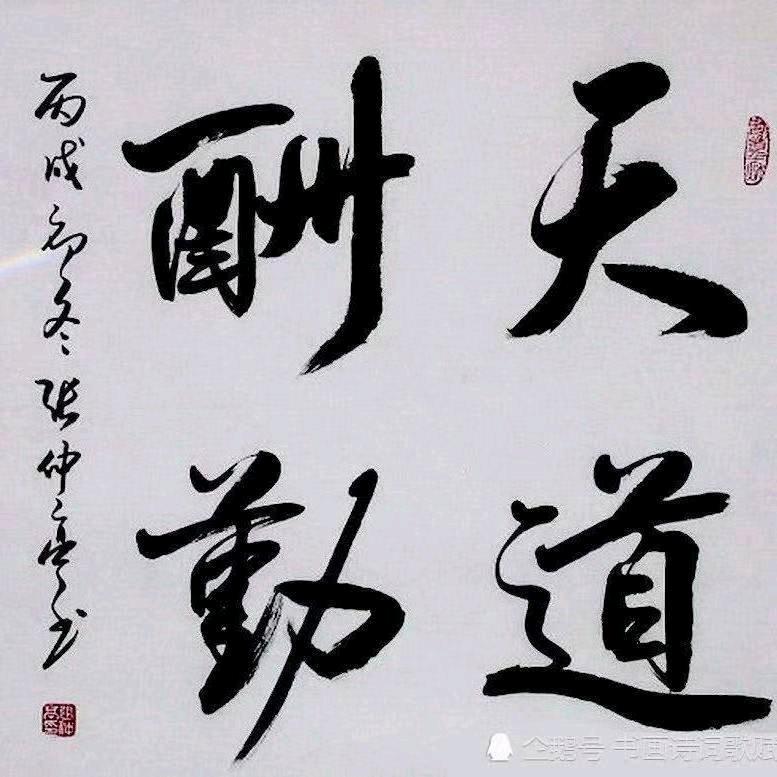 天道
酬勤
丙戌初冬张仲亭书
企鹅号 书画诗词歌赋